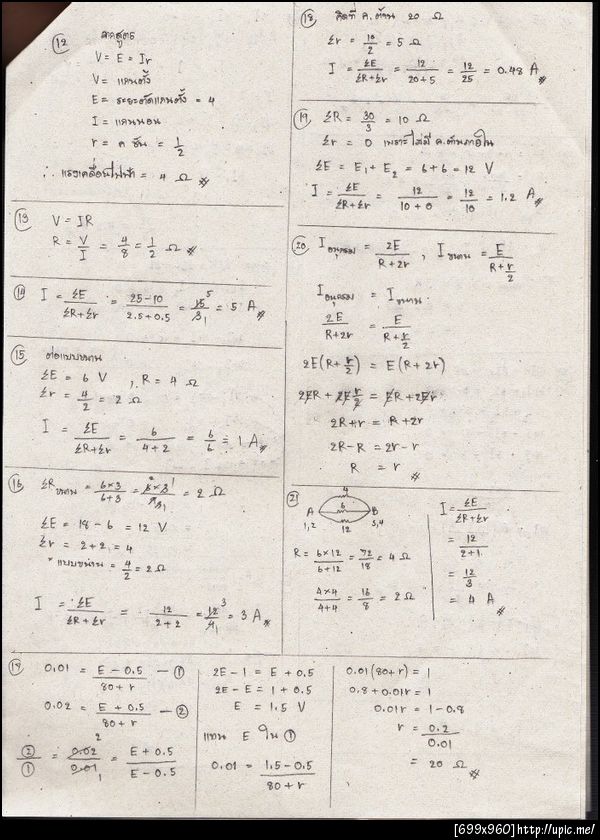 12 จากสูตร
V = E = Ir
V = แกนตั้ง
E = ระยะตัดแกนตั้ง = 4
I = แกนนอน
r = ค.ชัน = 1/2
∴ แรงเคลื่อนไฟฟ้า = 4 Ω
13 V = IR
R = V/I = 4/8 = 1/2 Ω
14 I = ΣE/(ΣR+Σr) = (25-10)/(2.5+0.5) = 15/3 = 5 A
15 ต่อแบบขนาน
ΣE = 6 V , R = 4 Ω
Σr = 4/2 = 2 Ω
I = ΣE/(ΣR+Σr) = 6/(4+2) = 6/6 = 1 A
16 ΣR ขนาน = (6×3)/(6+3) = (6×3)/9 = 2 Ω
ΣE = 18 - 6 = 12 V
Σr = 2+2 = 4
* แบบขนาน = 4/2 = 2 Ω
I = ΣE/(ΣR+Σr) = 12/(2+2) = 12/4 = 3 A
18 คิดที่ ค.ต้าน 20 Ω
Σr = 10/2 = 5 Ω
I = ΣE/(ΣR+Σr) = 12/(20+5) = 12/25 = 0.48 A
19 ΣR = 30/3 = 10 Ω
Σr = 0 เพราะไม่มี ค.ต้านภายใน
ΣE = E1 + E2 = 6+6 = 12 V
I = ΣE/(ΣR+Σr) = 12/(10+0) = 12/10 = 1.2 A
20 I อนุกรม = 2E/(R+2r) , I ขนาน = E/(R+r/2)
I อนุกรม = I ขนาน
2E/(R+2r) = E/(R+r/2)
2E(R+r/2) = E(R+2r)
2ER + 2E r/2 = ER + 2Er
2R+r = R+2r
2R-R = 2r-r
R = r
21 4
A 6 B
1,2 12 3,4
R = (6×12)/(6+12) = 72/18 = 4 Ω
(4×4)/(4+4) = 16/8 = 2 Ω
I = ΣE/(ΣR+Σr)
= 12/(2+1)
= 12/3
= 4 A
0.01 = (E-0.5)/(80+r) — ①
0.02 = (E+0.5)/(80+r) — ②
②/① = 0.02/0.01 = (E+0.5)/(E-0.5)
2E-1 = E+0.5
2E-E = 1+0.5
E = 1.5 V
แทน E ใน ①
0.01 = (1.5-0.5)/(80+r)
0.01(80+r) = 1
0.8+0.01r = 1
0.01r = 1-0.8
r = 0.2/0.01
= 20 Ω
[699x960]http://upic.me/